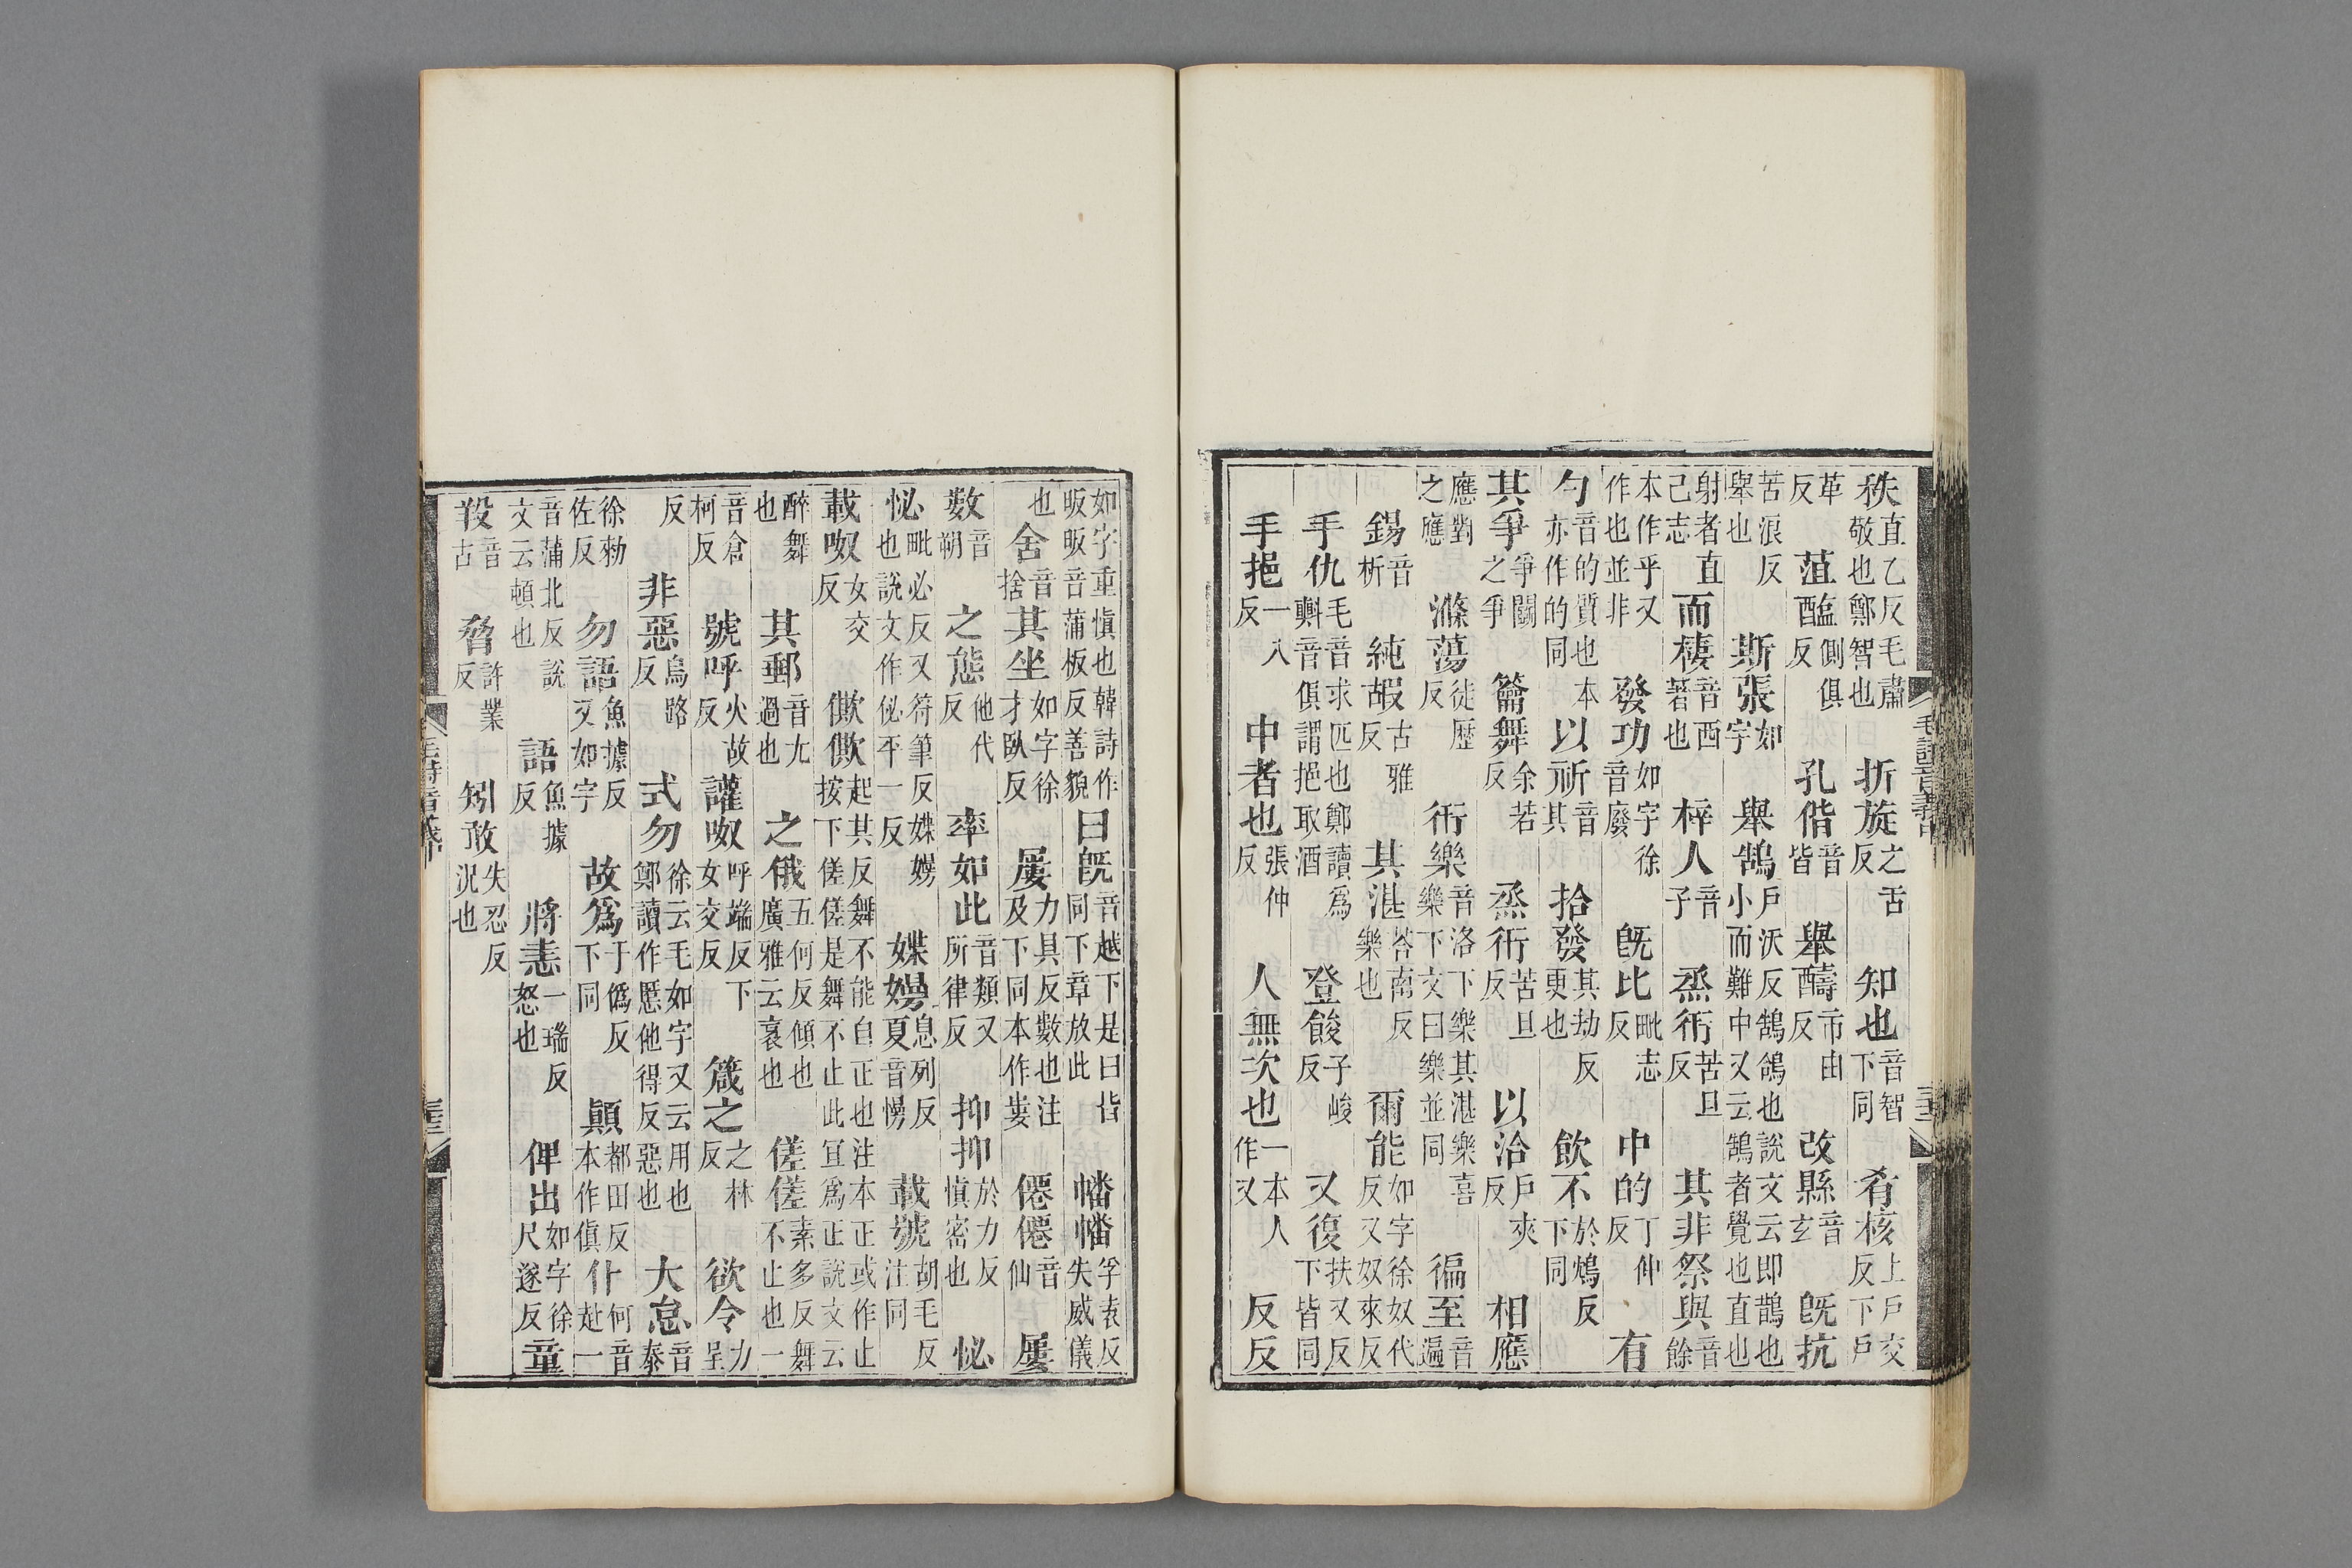 毛詩音義中
秩直乙反毛肅敬也鄭智也折旋之舌反知也音智下同肴核上戶交反下戶
革反菹醢側俱反孔偕音皆舉醻市由反改縣音玄既抗
苦浪反舉也斯張如字舉鵠戶沃反鵠鴿也說文云即鵲也小而難中又云鵠者覺也直也
射者直己志而棲音西著也梓人音子烝衎苦旦反其非祭與音餘
本作乎又作也並非發功如字徐音廢既比毗志反中的丁仲反有
勺音的質也本亦作的同以祈音其拾發其劫反更也飲不於鴆反下同
其爭爭鬭之爭籥舞余若反烝衎苦旦反以洽戶夾反相應
應對之應滌蕩徒歷反衎樂音洛下樂其湛樂喜樂下文曰樂並同徧至音遍
錫音析純嘏古雅反其湛荅南反樂也爾能如字徐奴代反又奴來反
手仇毛音求匹也鄭讀爲㪺音俱謂挹取酒登餕子峻反又復扶又反下皆同
手挹一入反中者也張仲反人無次也一本人作又反反
如字重慎也韓詩作昄昄音蒲板反善貌曰既音越下是曰皆同下章放此幡幡孚袁反失威儀
也舍音捨其坐如字徐才臥反屢力具反數也注及下同本作婁僊僊音仙屢
數音朔之態他代反率如此音類又所律反抑抑於力反慎密也怭
怭毗必反又符筆反媟嫚也說文作佖平一反媟嫚息列反夏音慢載號胡毛反注同
載呶女交反僛僛起其反舞不能自正也注本正或作止按下傞傞是舞不止此宜爲正說文云
醉舞也其郵音尤過也之俄五何反傾也廣雅云衺也傞傞素多反舞不止也一
音倉柯反號呼火故反讙呶呼端反下女交反箴之之林反欲令力呈
反非惡烏路反式勿徐云毛如字又云用也鄭讀作慝他得反惡也大怠音泰
徐勑佐反勿語魚據反又如字故爲于僞反下同顛都田反本作傎仆何音赴一
音蒲北反說文云頓也語魚據反將恚一瑞反怒也俾出如字徐尺遂反童
羖音古脅許業反矧敢失忍反況也
毛詩音義中